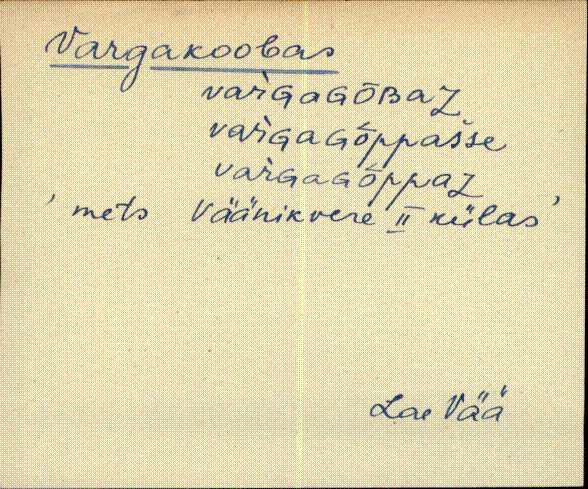 Vargakoobas
vaŕGaGōBaZ
vaŕGaGṓppašse
vaŕGaGṓppaZ
' mets Väänikvere II külas '
Lae Vää